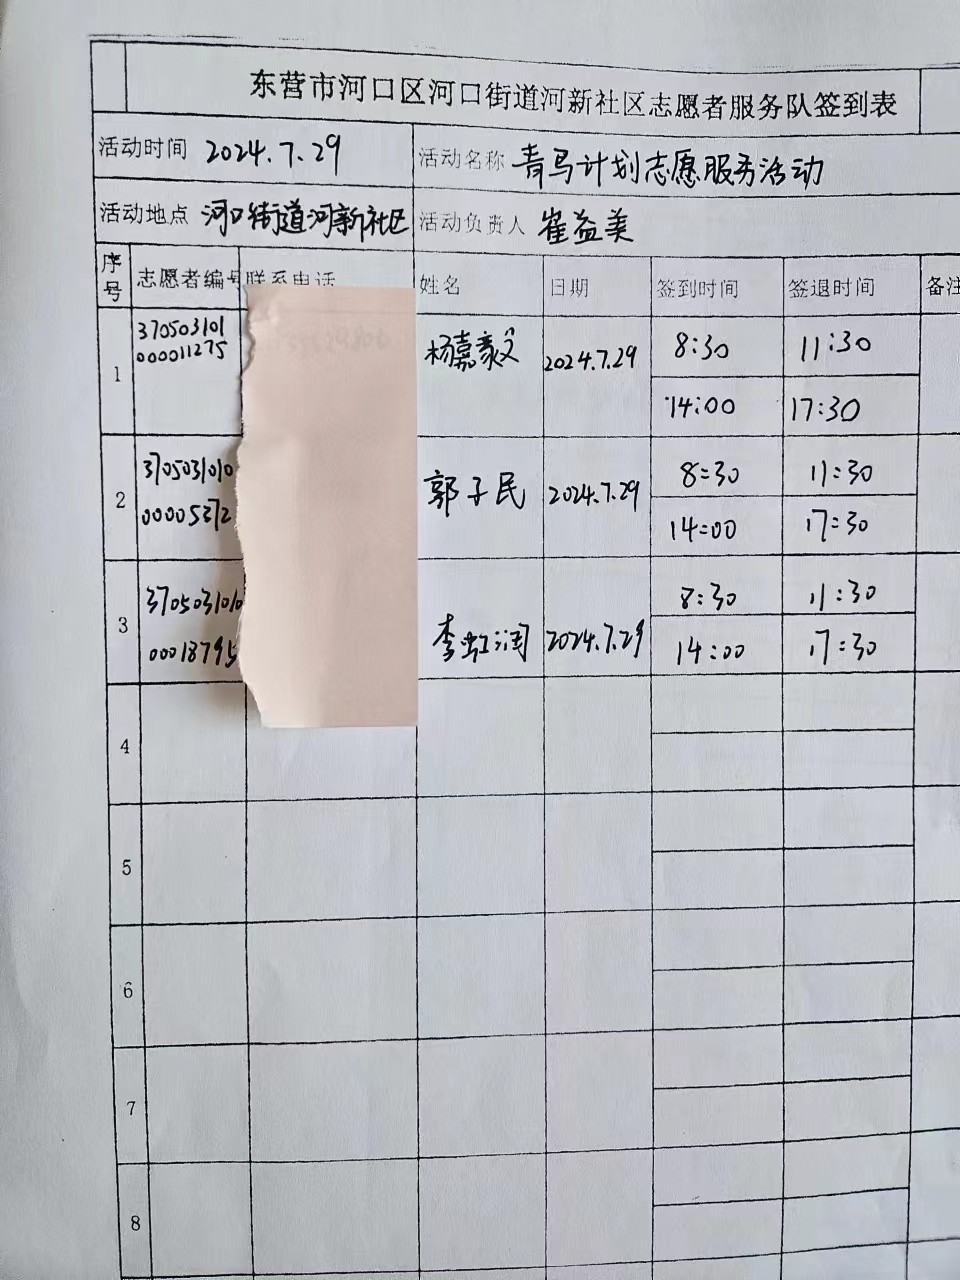 东营市河口区河口街道河新社区志愿者服务队签到表
活动时间 2024.7.29 活动名称 青马计划志愿服务活动
活动地点 河口街道河新社区 活动负责人 崔益美
序号 志愿者编号 联系电话 姓名 日期 签到时间 签退时间 备注
370503101
000011275
1 杨嘉毅 2024.7.29 8:30 11:30
14:00 17:30
3705031010
00005372
2 郭子民 2024.7.29 8:30 11:30
14:00 17:30
3705031010
00018795
3 李虹润 2024.7.29 8:30 11:30
14:00 17:30
4
5
6
7
8